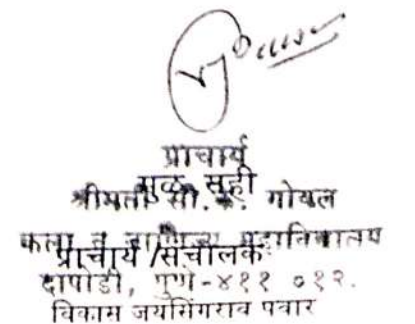 प्राचार्य
मुळ सही
श्रीमती सी. के. गोयल
कला व वाणिज्य महाविद्यालय
प्राचार्य /संचालक
दापोडी, पुणे-४११ ०१२.
विकास जयसिंगराव पवार